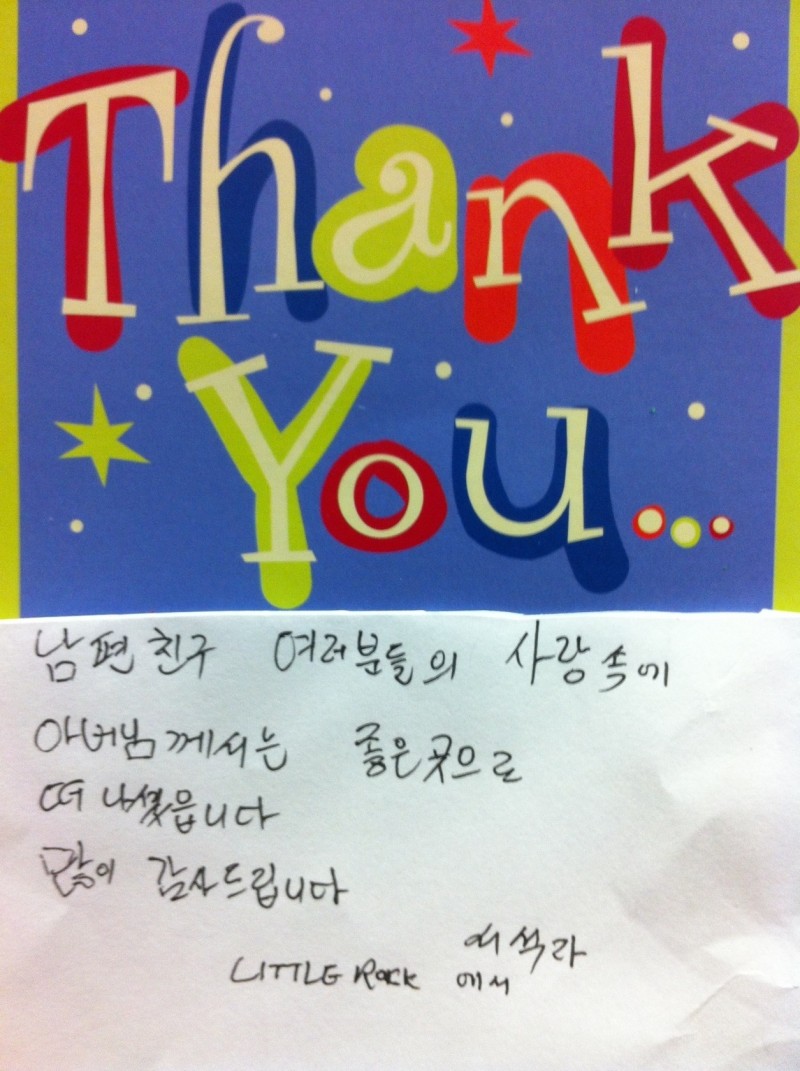 Thank
You...
남편친구 여러분들의 사랑속에
아버님께서는 좋은곳으로
떠나셨읍니다
많이 감사드립니다
석라
LITTLE ROCK 에서